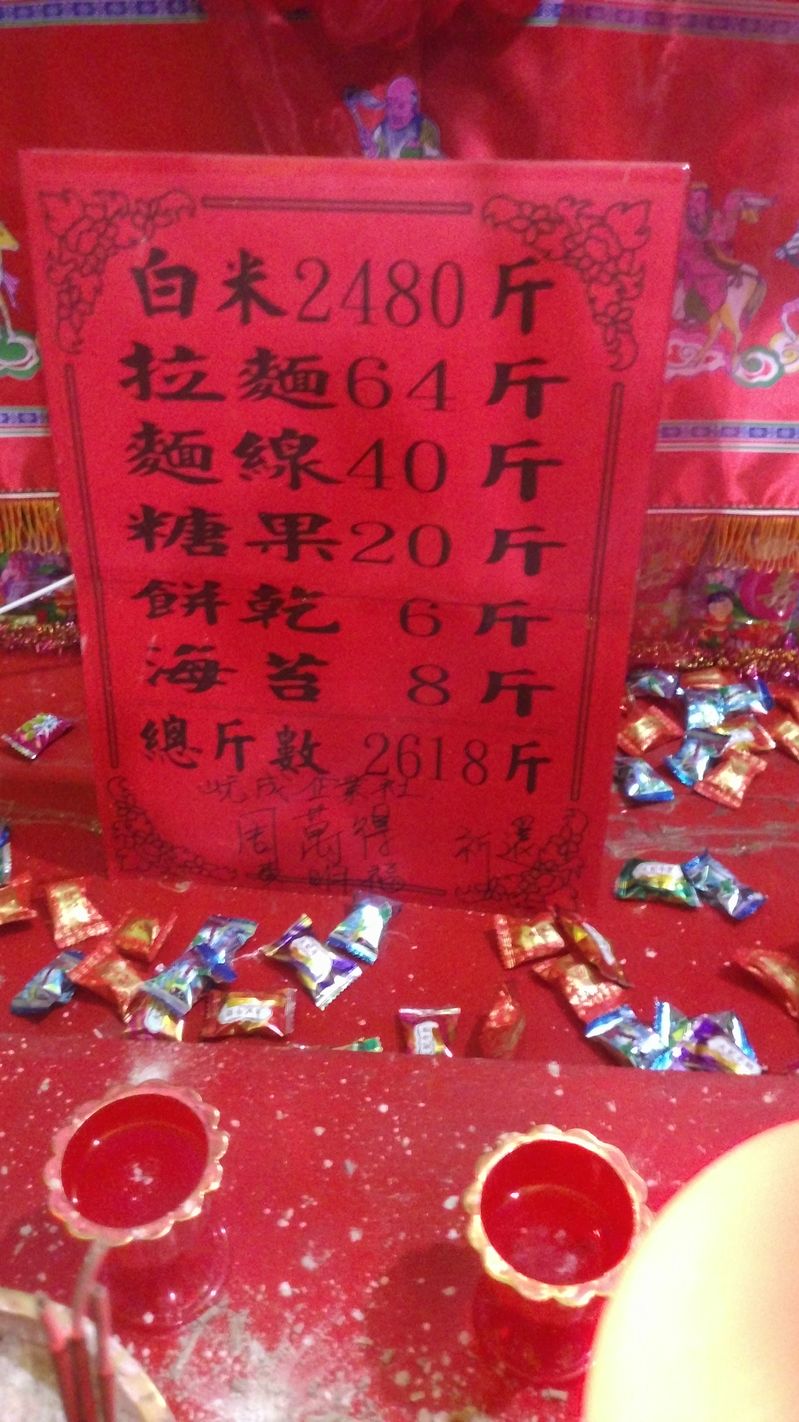 白米2480斤
拉麵64斤
麵線40斤
糖果20斤
餅乾 6斤
海苔 8斤
總斤數 2618斤
成企業社
周萬得
明福